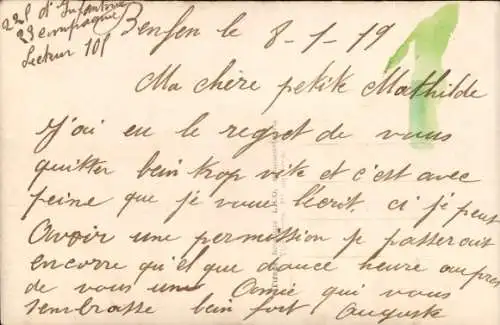 221 d'Infanterie
23 compagnie
Secteur 101
Benfen le 8-1-19
Ma chère petite Mathilde
J'ai eu le regret de vous
quitter bein trop vite et c'est avec
peine que je vous l'écrit. ci je peut
Avoir une permission je passerait
encorre qu'el que douce heure au pres
de vous une Amie qui vous
s'embrasse bein fort Auguste